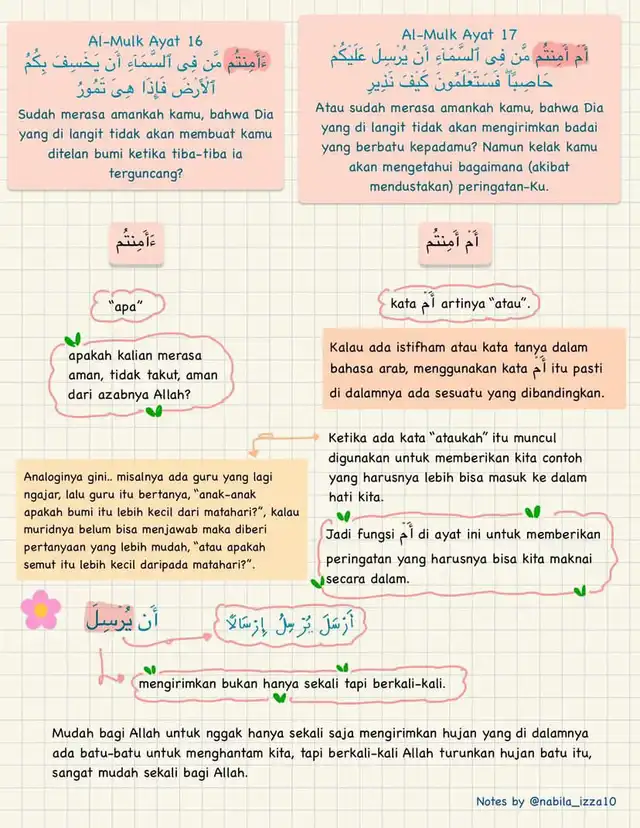 Al-Mulk Ayat 16
ءَأَمِنتُم مَّن فِى ٱلسَّمَآءِ أَن يَخْسِفَ بِكُمُ
ٱلْأَرْضَ فَإِذَا هِىَ تَمُورُ
Sudah merasa amankah kamu, bahwa Dia
yang di langit tidak akan membuat kamu
ditelan bumi ketika tiba-tiba ia
terguncang?
Al-Mulk Ayat 17
أَمْ أَمِنتُم مَّن فِى ٱلسَّمَآءِ أَن يُرْسِلَ عَلَيْكُمْ
حَاصِبًا فَسَتَعْلَمُونَ كَيْفَ نَذِيرِ
Atau sudah merasa amankah kamu, bahwa Dia
yang di langit tidak akan mengirimkan badai
yang berbatu kepadamu? Namun kelak kamu
akan mengetahui bagaimana (akibat
mendustakan) peringatan-Ku.
ءَأَمِنتُم
أَمْ أَمِنتُم
“apa”
kata أَمْ artinya “atau”.
apakah kalian merasa
aman, tidak takut, aman
dari azabnya Allah?
Kalau ada istifham atau kata tanya dalam
bahasa arab, menggunakan kata أَمْ itu pasti
di dalamnya ada sesuatu yang dibandingkan.
Ketika ada kata “ataukah” itu muncul
digunakan untuk memberikan kita contoh
yang harusnya lebih bisa masuk ke dalam
hati kita.
Analoginya gini.. misalnya ada guru yang lagi
ngajar, lalu guru itu bertanya, “anak-anak
apakah bumi itu lebih kecil dari matahari?”, kalau
muridnya belum bisa menjawab maka diberi
pertanyaan yang lebih mudah, “atau apakah
semut itu lebih kecil daripada matahari?”.
Jadi fungsi أَمْ di ayat ini untuk memberikan
peringatan yang harusnya bisa kita maknai
secara dalam.
أَن يُرْسِلَ
أَرْسَلَ يُرْسِلُ إِرْسَالًا
mengirimkan bukan hanya sekali tapi berkali-kali.
Mudah bagi Allah untuk nggak hanya sekali saja mengirimkan hujan yang di dalamnya
ada batu-batu untuk menghantam kita, tapi berkali-kali Allah turunkan hujan batu itu,
sangat mudah sekali bagi Allah.
Notes by @nabila_izza10